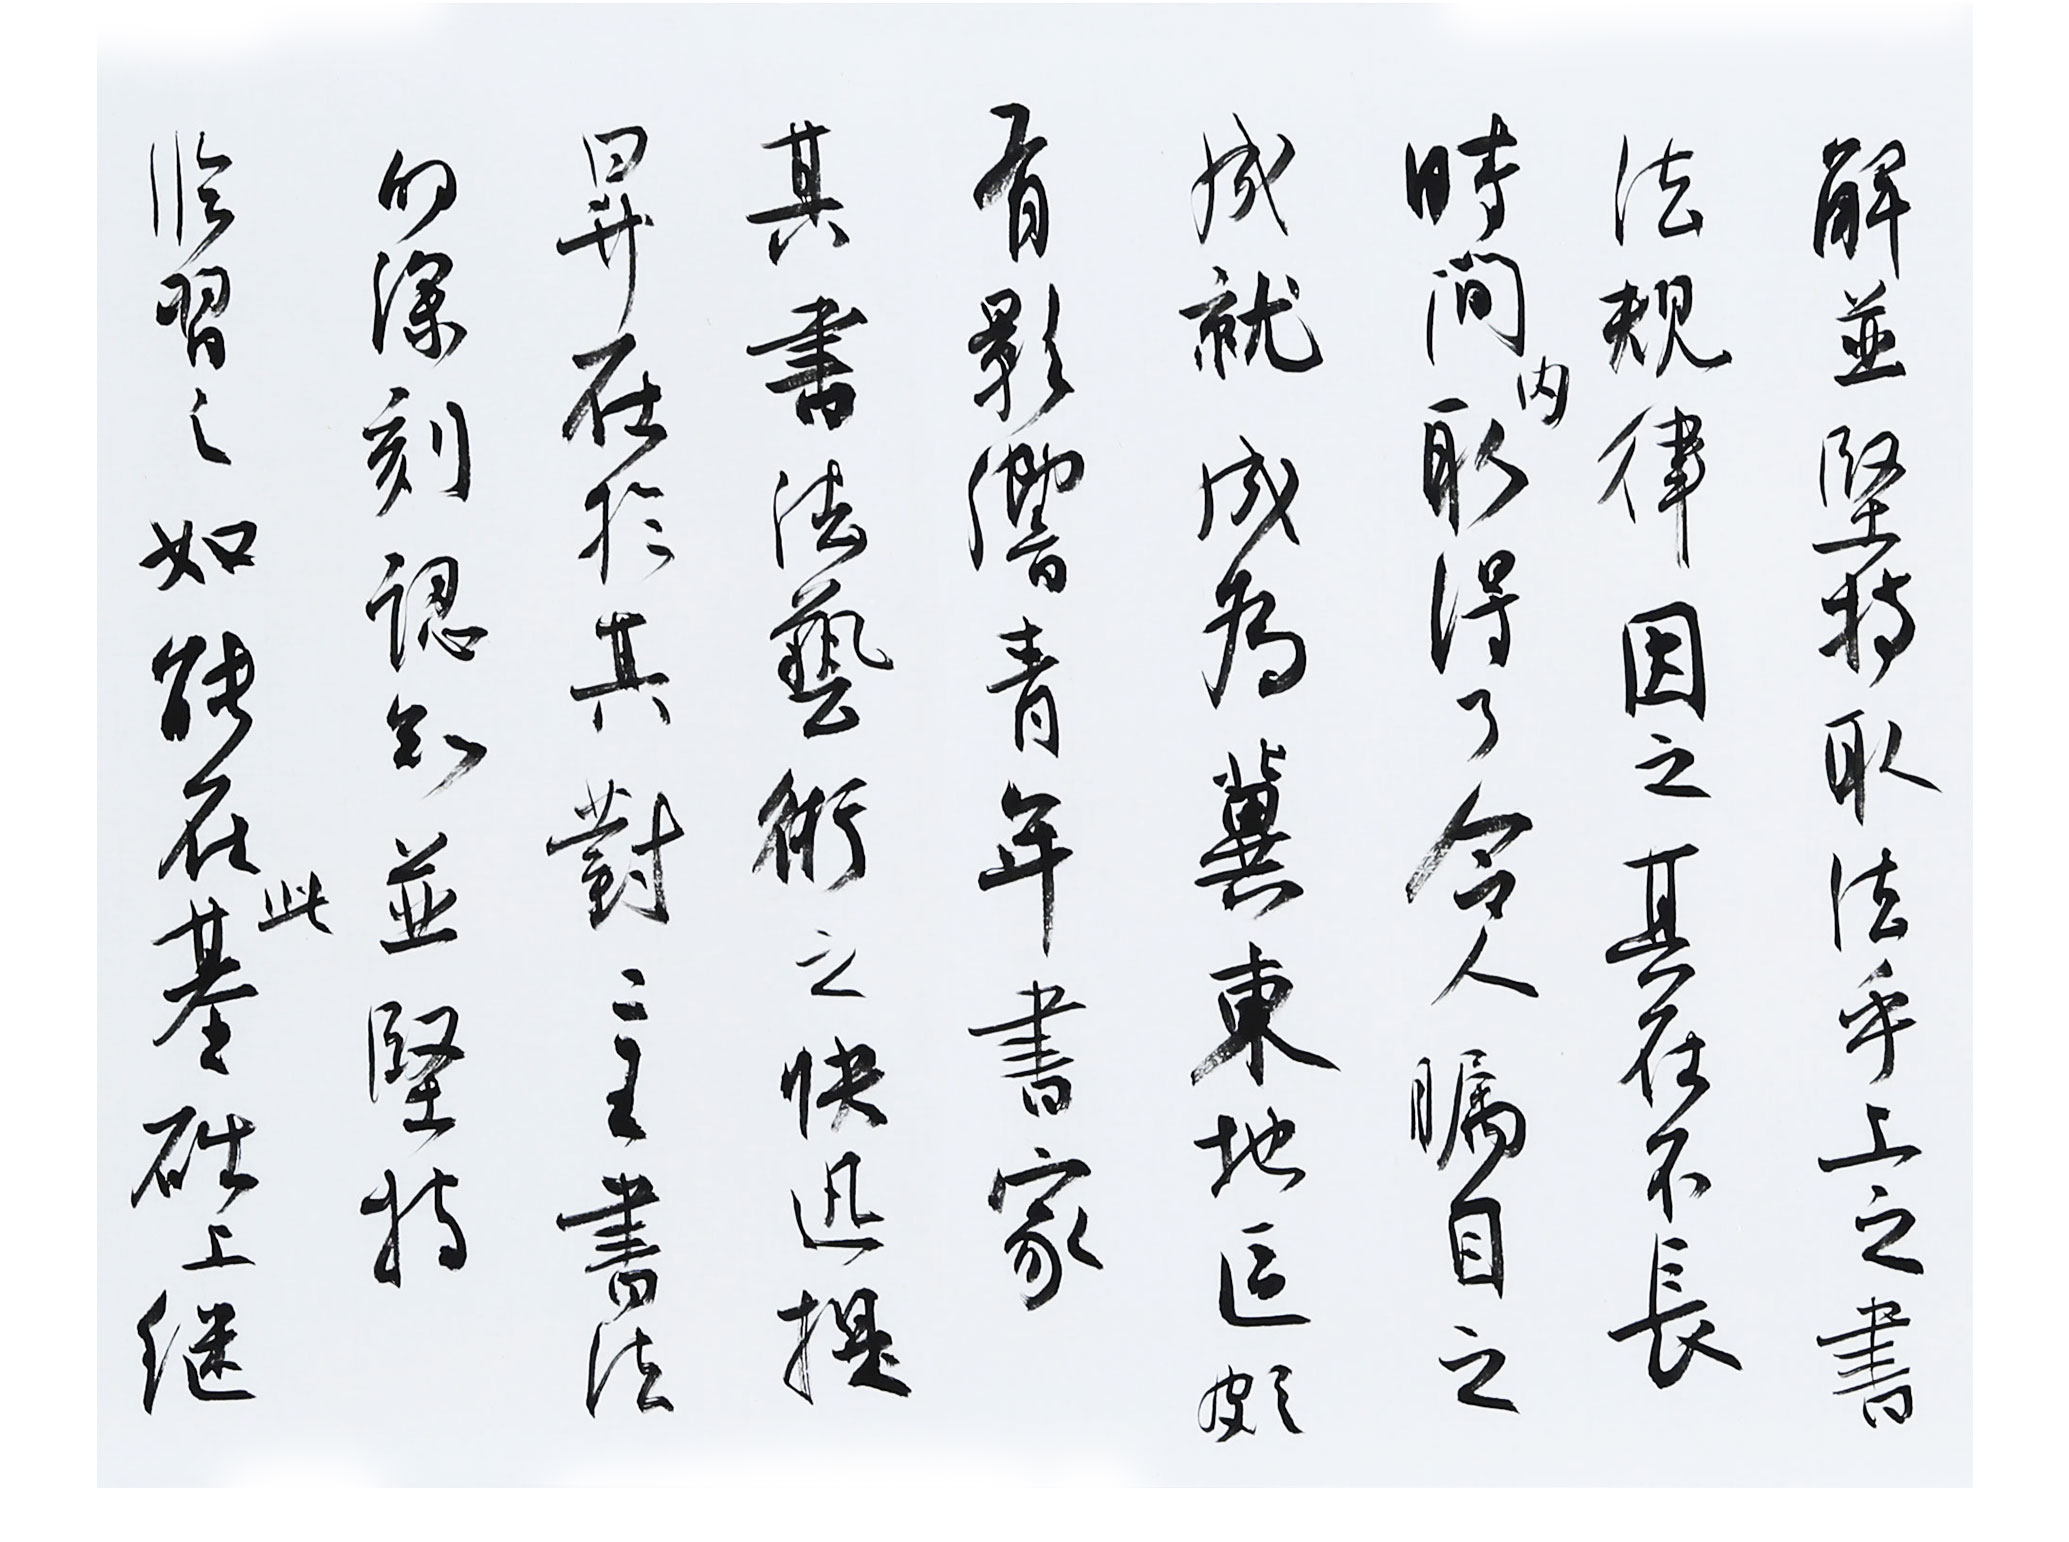 解並堅持取法乎上之書
法規律因之其在不長
時間内取得了令人瞩目之
成就成為冀東地區頗
有影響青年書家
其書法藝術之快迅提
昇在於其對二王書法
的深刻認知並堅持
臨習之如能在此基础上继